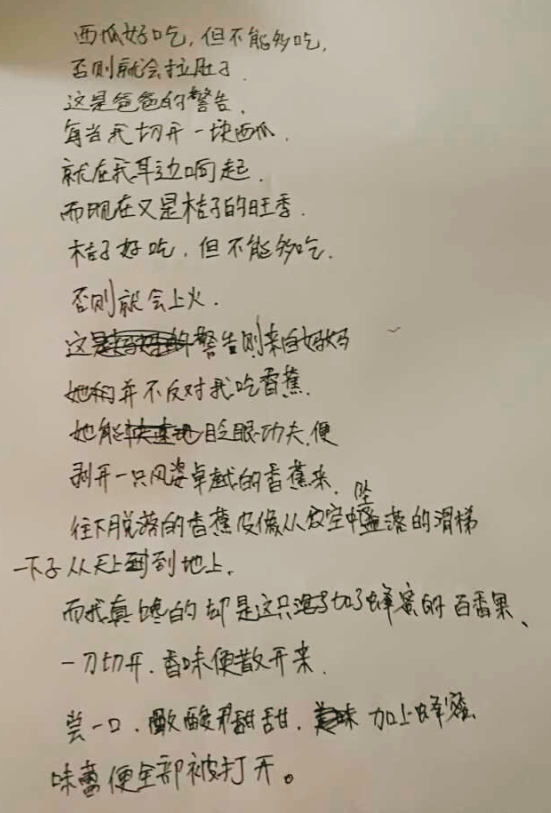 西瓜好吃，但不能多吃，
否则就会拉肚子.
这是爸爸的警告.
每当我切开一块西瓜.
就在我耳边响起.
而现在又是桔子的旺季.
桔子好吃，但不能多吃.
否则就会上火.
这警告则来自妈妈
她们并不反对我吃香蕉.
她能眨眼功夫,便
剥开一只风姿卓越的香蕉来.
往下脱落的香蕉皮像从空中坠落的滑梯
一下子从天上到地上.
而我真馋的却是这只加了蜂蜜的百香果、
一刀切开.香味便散开来.
尝一口.酸酸甜甜.加上蜂蜜
味蕾便全部被打开。